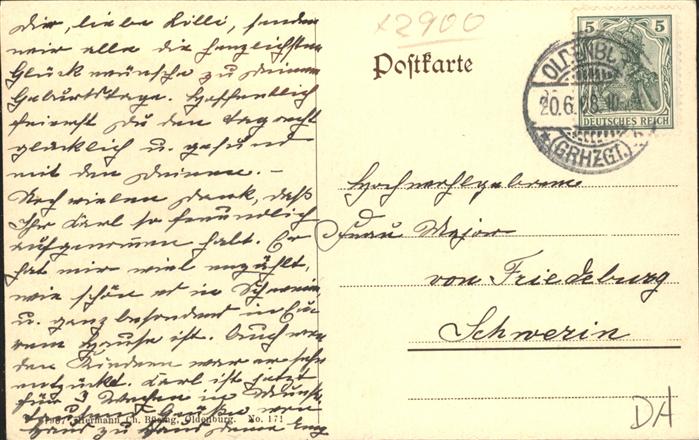 Dir, liebe Lilli, senden
wir alle die herzlichsten
Glückwünsche zu Deinem
Geburtstage. Hoffentlich
feierst Du den Tag recht
glücklich u. gesund
mit den Deinen. –
Noch vielen Dank, daß
Ihr Karl so freundlich
aufgenommen habt. Er
hat mir viel erzählt,
wie schön es in Schwerin
u. ganz besonders in Eu-
rem Hause ist. Auch von
den Kindern war er sehr
entzückt. Karl ist jetzt
für 3 Wochen in
Tausend Grüße von
Haus zu Haus Deine
Hermann, Ch. Büsing, Oldenburg. No. 171
x2900
Postkarte
5 5
DEUTSCHES REICH
20.6.
(GRHZGT.)
Hochwohlgeboren
Frau Major
von Friedeburg
Schwerin
DH